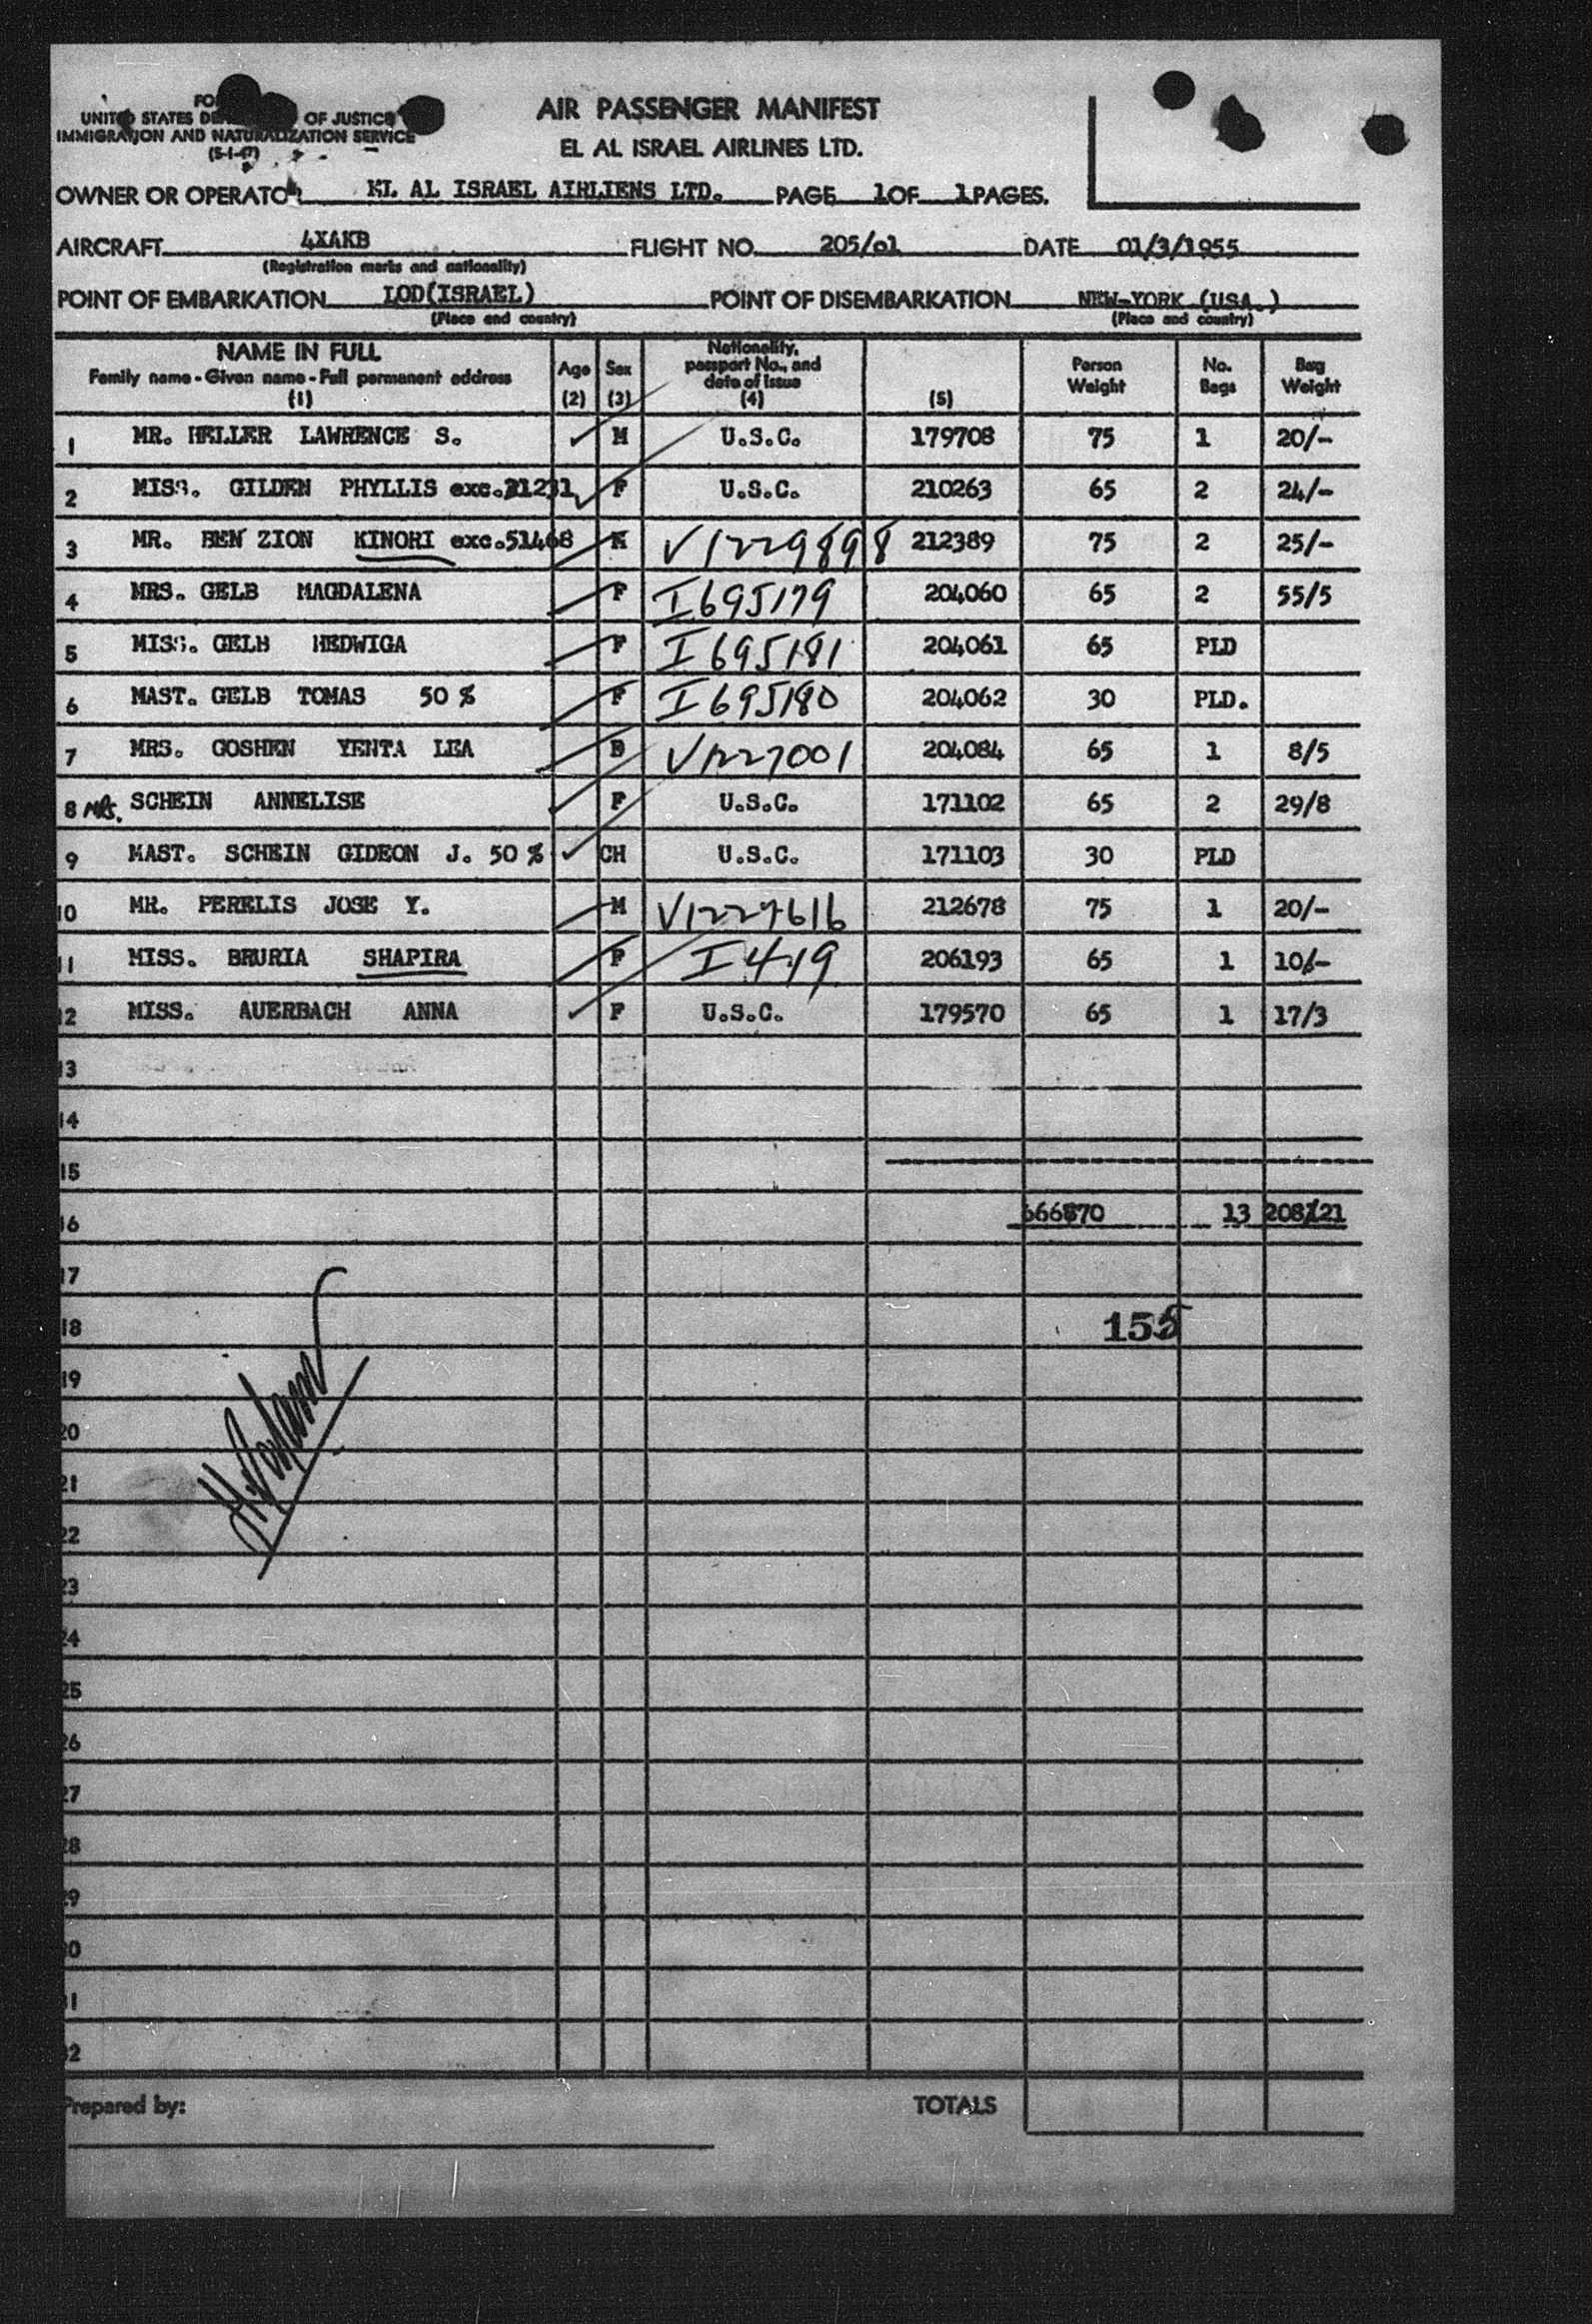 AIR PASSENGER MANIFEST
EL AL ISRAEL AIRLINES LTD.
UNITED STATES OF JUSTICE
IMMIGRATION AND NATURALIZATION SERVICE
OWNER OR OPERATOR EL AL ISRAEL AIRLIENS LTD. PAGE 1 OF 1 PAGES.
AIRCRAFT 4XAKB FLIGHT NO. 205/01 DATE 01/3/1955
(Registration marks and nationality)
POINT OF EMBARKATION LOD(ISRAEL) POINT OF DISEMBARKATION NEW-YORK (USA.)
(Place and country) (Place and country)
NAME IN FULL
Family name - Given name - Full permanent address
(1)
Age
(2)
Sex
(3)
Nationality,
passport No., and
date of issue
(4)
(5)
Person
Weight
No.
Bags
Bag
Weight
1 MR. HELLER LAWRENCE S. M U.S.C. 179708 75 1 20/-
2 MISS. GILDEN PHYLLIS exc. F U.S.C. 210263 65 2 24/-
3 MR. BEN ZION KINORI exc.51468 V1229898 212389 75 2 25/-
4 MRS. GELB MAGDALENA F I695179 204060 65 2 55/5
5 MISS. GELB HEDWIGA F I695181 204061 65 PLD
6 MAST. GELB TOMAS 50 % F I695180 204062 30 PLD.
7 MRS. GOSHEN YENTA LEA V1227001 204084 65 1 8/5
8 Mrs. SCHEIN ANNELISE F U.S.C. 171102 65 2 29/8
9 MAST. SCHEIN GIDEON J. 50 % CH U.S.C. 171103 30 PLD
10 MR. PERELIS JOSE Y. M V1227616 212678 75 1 20/-
11 MISS. BRURIA SHAPIRA F I 419 206193 65 1 10/-
12 MISS. AUERBACH ANNA F U.S.C. 179570 65 1 17/3
13
14
15
16 13
17
18 155
19
20
21
22
23
24
25
26
27
28
29
30
31
32
Prepared by: TOTALS